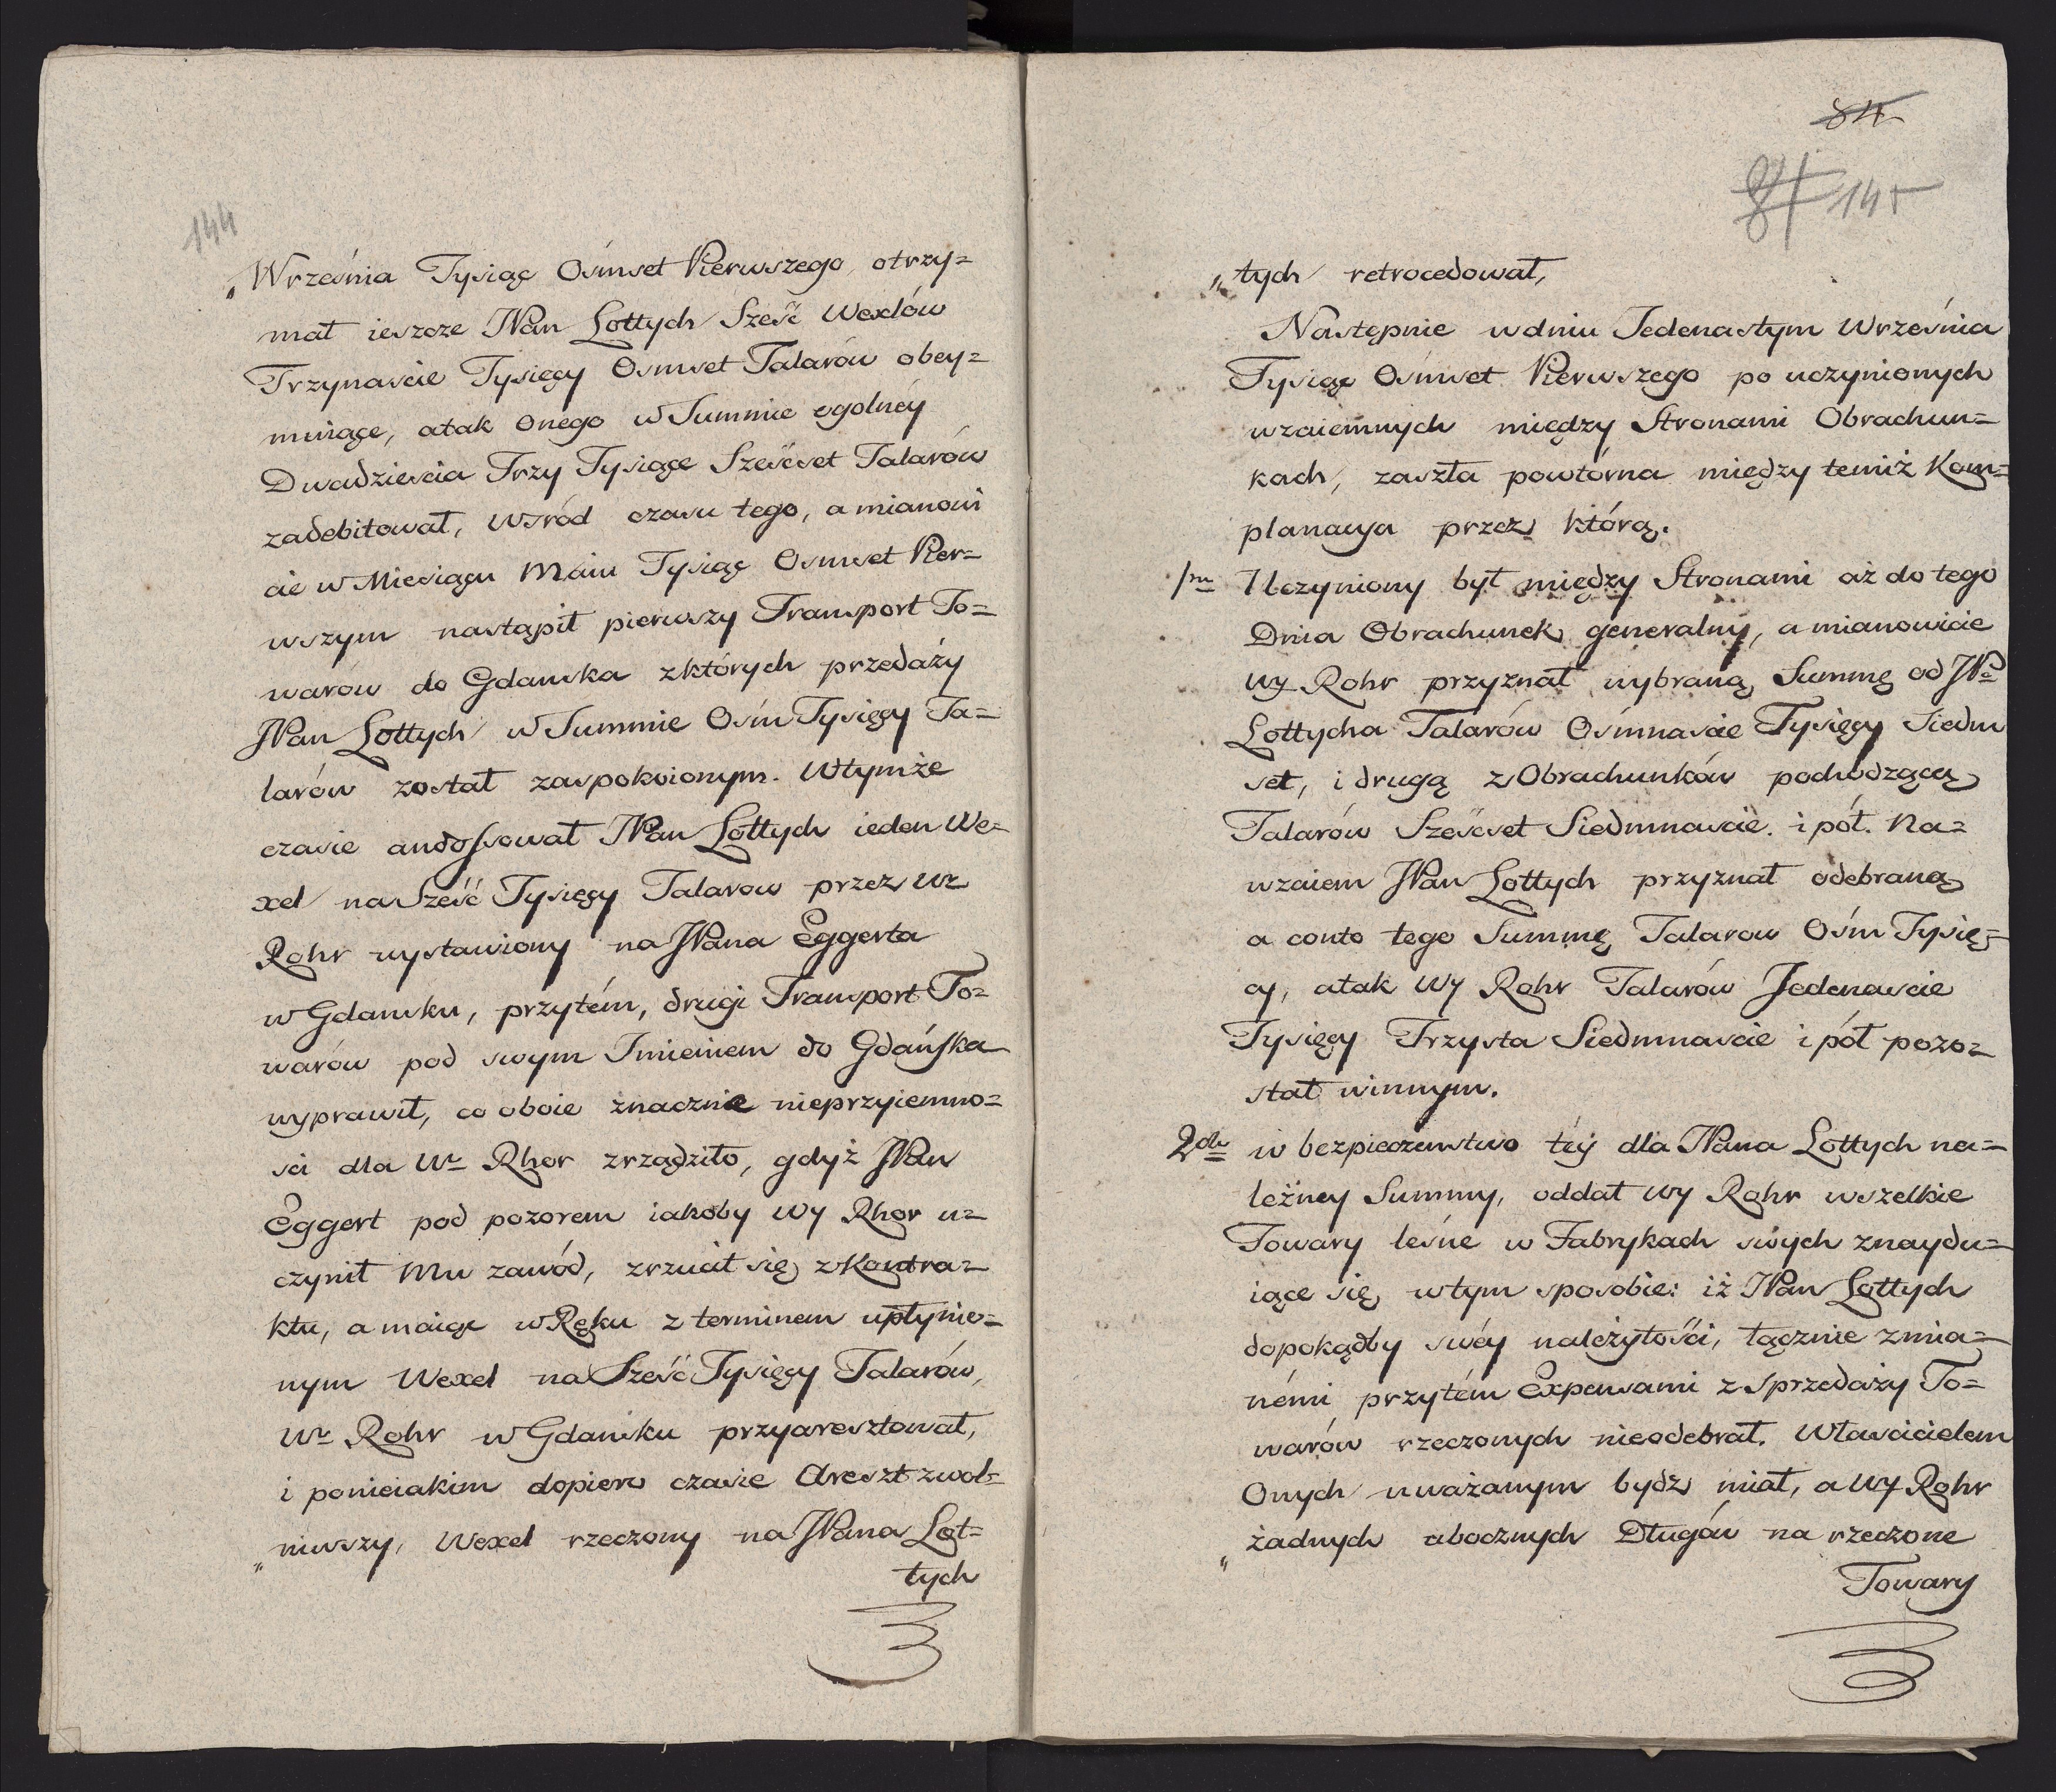 144
„Września Tysiąc Osmset Pierwszego, otrzy=
mał ieszcze JPan Lottych Sześć Wexlów
Trzynascie Tysięcy Osmset Talarów obey=
muiące, atak Onego w Summie ogolnéy
Dwadziescia Trzy Tysiące Sześćset Talarów
zadebitował, Wsród czasu tego, a mianowi
cie w Miesiącu Maiu Tysiąc Osmset Pier=
wszym nastąpił pierwszy Transport To=
warow do Gdanska zktórych przedaży
JPan Lottych w Summie Osm Tysięcy Ta=
larów został zaspokoionym. Wtymże
czasie andossował JPan Lottych ieden We=
xel na Sześć Tysięcy Talarow przez Wr
Rohr wystawiony na JPana Eggerta
w Gdansku, przytém, drugi Transport To=
warów pod swym Imieniem do Gdańska
wyprawił, co oboie znacznie nieprzyiemno=
sci dla Wr Rhor zrządziło, gdyż JPan
Eggert pod pozorem iakoby Wy Rhor u=
czynił Mu zawód, zrzucił się z Kontra=
ktu, a maiąc w Ręku z terminem upłynio=
nym Wexel na Sześć Tysięcy Talarów,
Wr Rohr w Gdansku przyaresztował,
i ponieiakim dopiero czasie Areszt zwol=
„niwszy, Wexel rzeczony na JPana Lot=
tych
84
84 145
„tych retrocedował,
Następnie wdniu Jedenastym Września
Tysiąc Ośmset Pierwszego po uczynionych
wzaiemnych między Stronami Obrachun=
kach, zaszła powtórna między temiż Kom=
planacya przez którą.
1m Uczyniony był między Stronami aż do tego
Dnia Obrachunek generalny, a mianowicie
Wy Rohr przyznał wybraną Summę od JPa
Lottycha Talarów Ośmnascie Tysięcy Siedm
set, i drugą z Obrachunków pochodzącą
Talarów Sześćset Siedmnascie. i pół. Na=
wzaiem JPan Lottych przyznał odebraną
a conto tego Summę Talarow Ośm Tysię=
cy, atak Wy Rohr Talarów Jedenascie
Tysięcy Trzysta Siedmnascie i pół pozo=
stał winnym.
2do w bezpieczenstwo téy dla JPana Lottych na=
leżney Summy, oddał Wy Rohr wszelkie
Towary leśne w Fabrykach swych znaydu=
iące się, wtym sposobie: iż JPan Lottych
dopokądby swéy należytości, łącznie zmia=
némi przytém Expensami z Sprzedaży To=
warów rzeczonych nieodebrał. Własciciélem
Onych uważanym bydz miał, a Wy Rohr
„żadnych ubocznych Długów na rzeczone
Towary